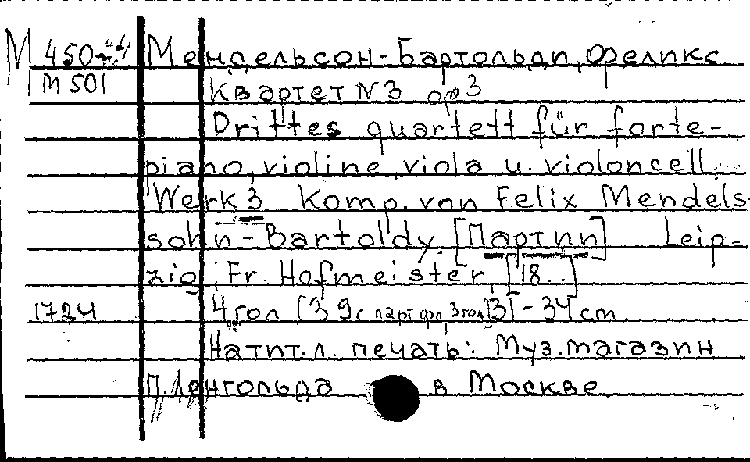 М 450 Мендельсон-Бартольди, Феликс
М 501 Квартет N3 op 3
Drittes quartett für forte-
piano, violine, viola u. violoncell.
Werk 3 Komp. von Felix Mendels-
sohn-Bartoldy. [Партии] Leip-
zig, Fr. Hofmeister, [18..]
1724 4 гол - 34 cm.
На тит. л. печать: Муз. магазин
Ленгольда в Москве